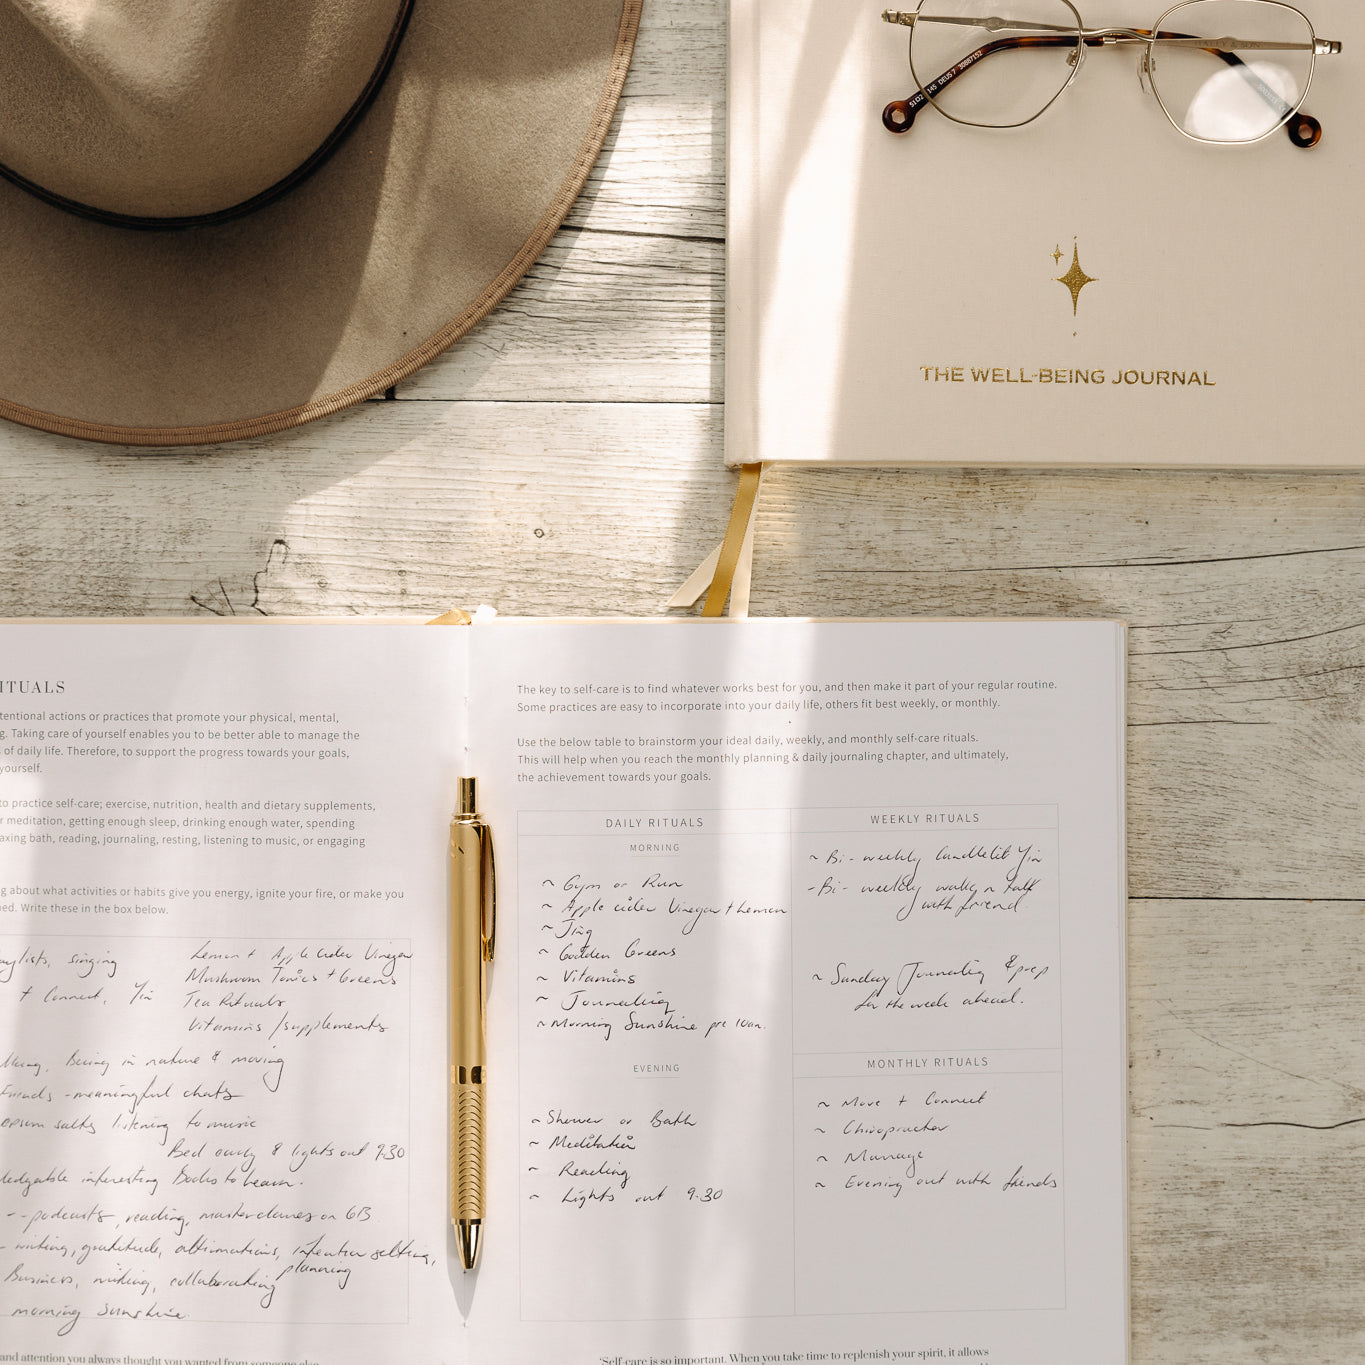 51□21 145 DEUS 7 30887152
THE WELL-BEING JOURNAL
RITUALS
tentional actions or practices that promote your physical, mental,
g. Taking care of yourself enables you to be better able to manage the
of daily life. Therefore, to support the progress towards your goals,
yourself.
to practice self-care; exercise, nutrition, health and dietary supplements,
r meditation, getting enough sleep, drinking enough water, spending
axing bath, reading, journaling, resting, listening to music, or engaging
g about what activities or habits give you energy, ignite your fire, or make you
ned. Write these in the box below.
aylists, singing
Lemon + Apple Cider Vinegar
Mushroom Tonics + Greens
+ Connect, Yin
Tea Rituals
Vitamins / supplements
Being in nature & moving
Friends - meaningful chats
epsom salts listening to music
Bed early & lights out 9.30
ledgable interesting Books to learn.
-- podcasts, reading, masterclasses on GB
- writing, gratitude, affirmations, intention setting,
planning
Business, writing, collaborating
morning Sunshine.
and attention you always thought you wanted from someone else
The key to self-care is to find whatever works best for you, and then make it part of your regular routine.
Some practices are easy to incorporate into your daily life, others fit best weekly, or monthly.
Use the below table to brainstorm your ideal daily, weekly, and monthly self-care rituals.
This will help when you reach the monthly planning & daily journaling chapter, and ultimately,
the achievement towards your goals.
DAILY RITUALS
MORNING
~ Gym or Run
~ Apple cider Vinegar + Lemon
~ Jing
~ Golden Greens
~ Vitamins
~ Journaling
~ Morning Sunshine pre 10am.
EVENING
~ Shower or Bath
~ Meditation
~ Reading
~ Lights out 9.30
WEEKLY RITUALS
~ Bi-weekly Candlelit Yin
- Bi-weekly walk n talk
with friend
~ Sunday Journaling & prep
for the week ahead.
MONTHLY RITUALS
~ Move + Connect
~ Chiropractor
~ Massage
~ Evening out with friends
'Self-care is so important. When you take time to replenish your spirit, it allows